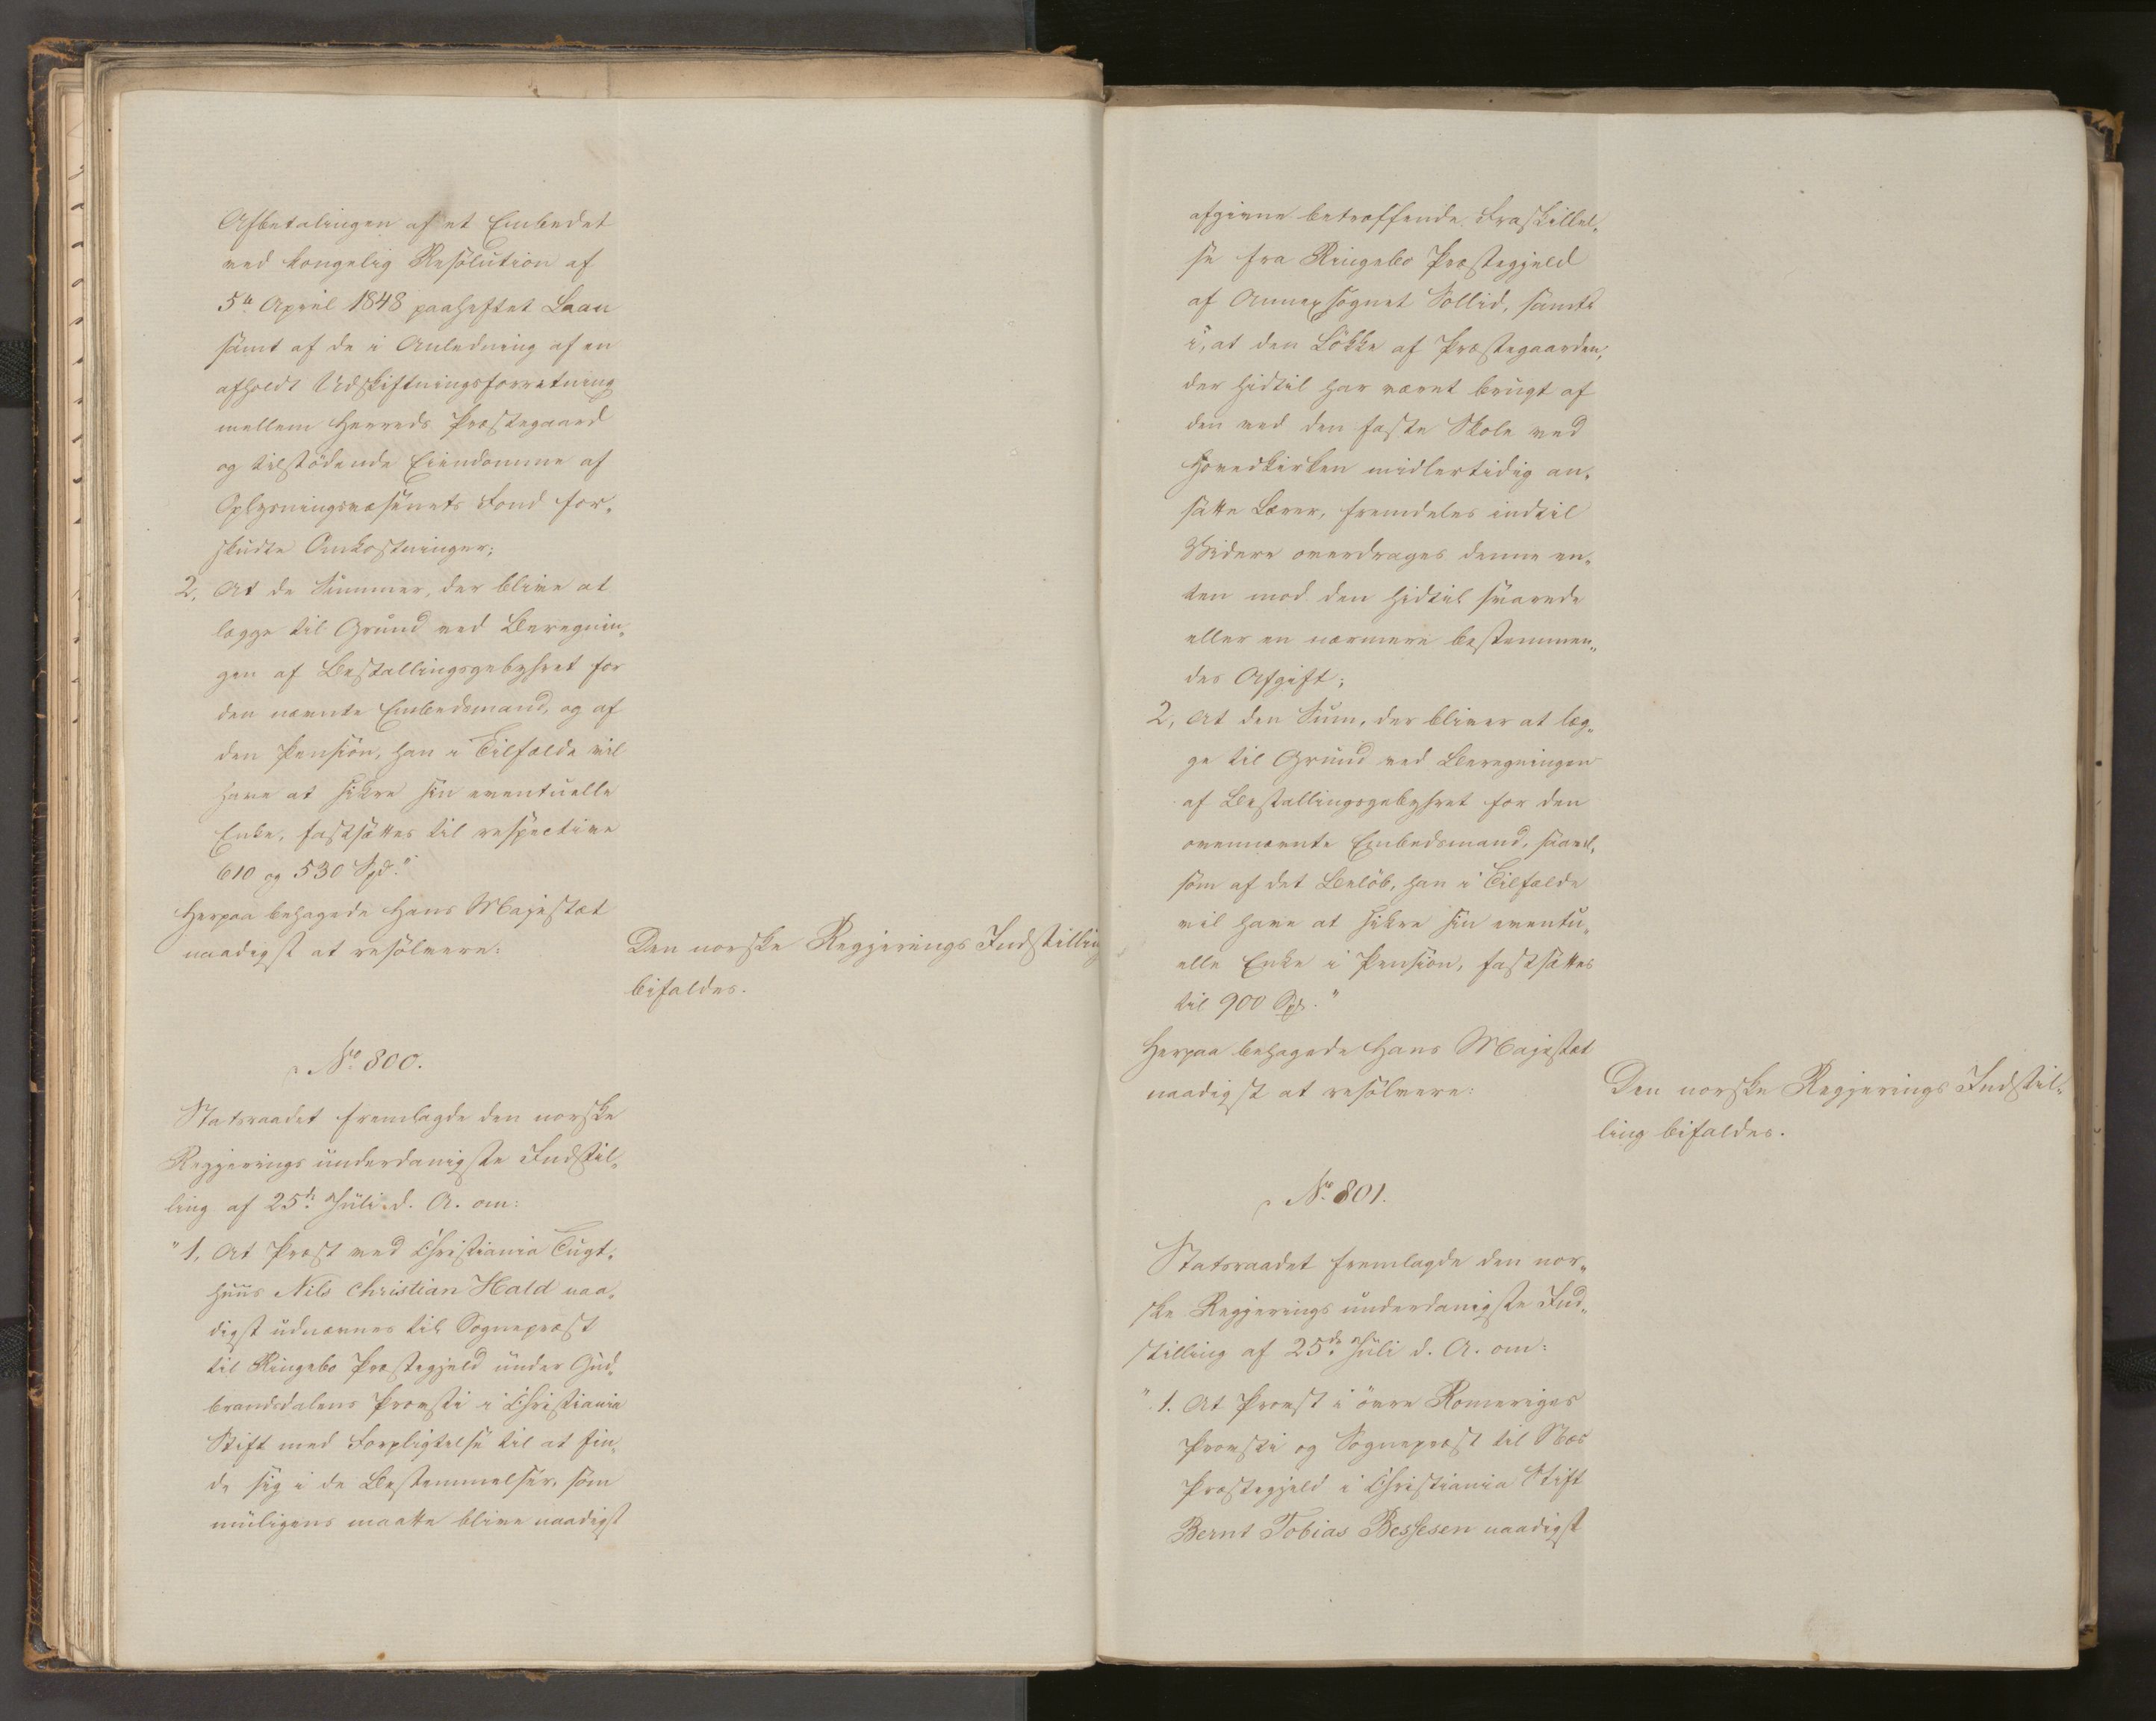 Afbetalingen af et Embedet
ved kongelig Resolution af
5te April 1848 paaheftet Laan
samt af de i Anledning af en
afholdt Udskiftningsforretning
mellem Herreds Præstegaard
og tilstødende Eiendomme af
Oplysningsvæsenets Fond for„
skudte Omkostninger;
2, At de Summer, der blive at
lægge til Grund ved Beregnin„
gen af Bestallingsgebyhret for
den nævnte Embedsmand, og af
den Pension, han i Tilfælde vil
have at sikre sin eventuelle
Enke, fastsættes til respective
610 og 530 Spd."
Herpaa behagede Hans Majestæt
naadigst at resolvere:
Den norske Regjerings Indstilling
bifaldes.
No 800.
Statsraadet fremlagde den norske
Regjerings underdanigste Indstil„
ling af 25de Juli d. A. om:
"1, At Præst ved Christiania Tugt„
huus Nils Christian Hald naa„
digst udnævnes til Sognepræst
til Ringebo Præstegjeld under Gud„
brandsdalens Provsti i Christiania
Stift med Forpligtelse til at fin„
de sig i de Bestemmelser, som
muligens maatte blive naadigst
afgivne betræffende Fraskillel„
se fra Ringebo Præstegjeld
af Annexsognet Sollid, samt
i, at den Løkke af Præstegaarden,
der hidtil har været brugt af
den ved den faste Skole ved
Hovedkirken midlertidig an„
satte Lærer, fremdeles indtil
Videre overdrages denne en„
ten mod den hidtil svarede
eller en nærmere bestemmen„
des Afgift;
2, At den Sum, der bliver at læg„
ge til Grund ved Beregningen
af Bestallingsgebyhret for den
ovennævnte Embedsmand, saavel„
som af det Beløb, han i Tilfælde
vil have at sikre sin eventu„
elle Enke i Pension, fastsættes
til 900 Spd."
Herpaa behagede Hans Majestæt
naadigst at resolvere:
Den norske Regjerings Indstil„
ling bifaldes.
No 801.
Statsraadet fremlagde den nor„
ske Regjerings underdanigste Ind„
stilling af 25de Juli d. A. om:
"1. At Provst i øvre Romeriges
Provsti og Sognepræst til Næs
Præstegjeld i Christiania Stift
Bernt Tobias Bessesen naadigst